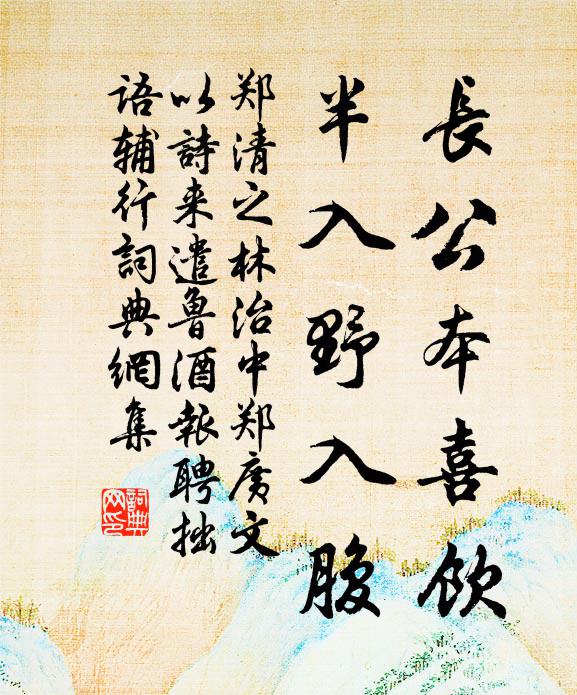 長公本喜飲
半入野入腹
郑清之林治中郑廣文
以詩来遣魯酒報聘拙
语辅行詞典網集
詞典
网印